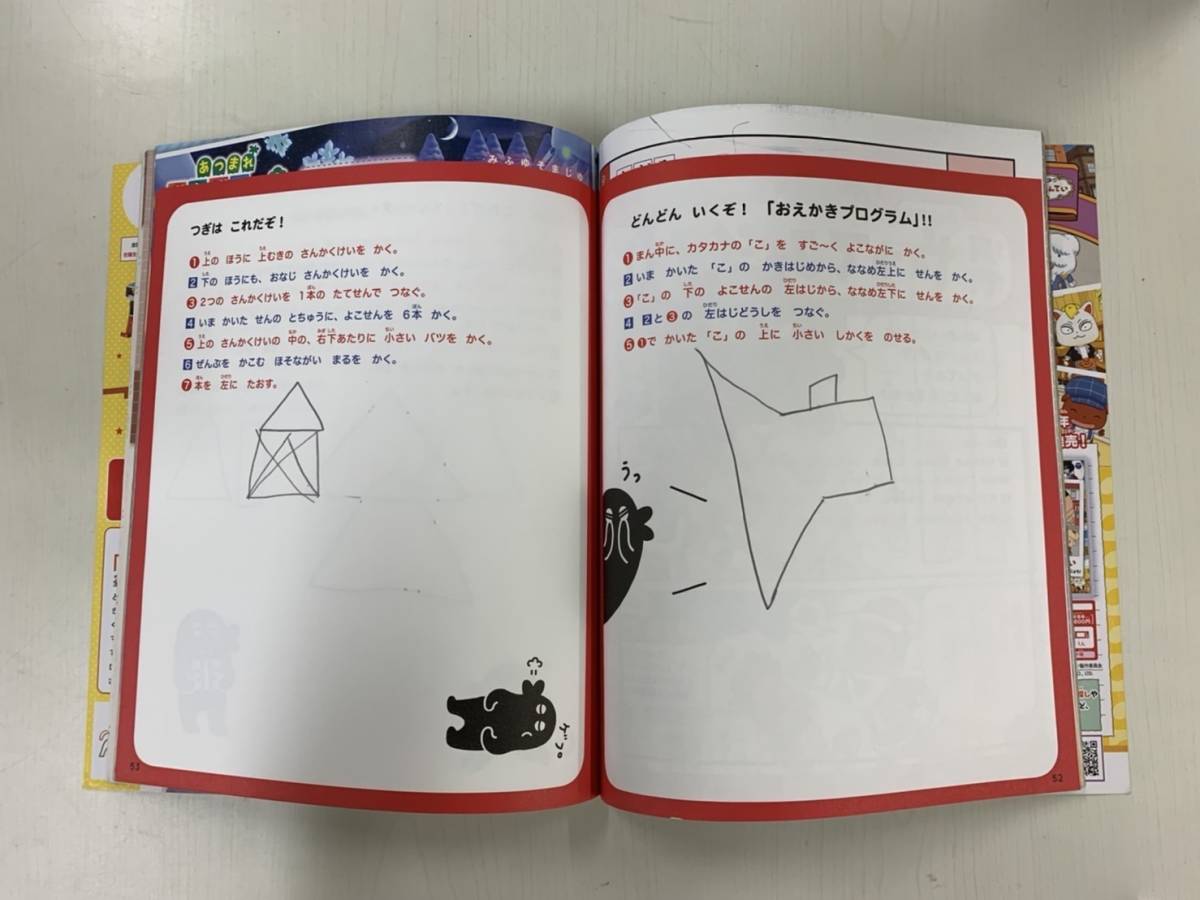 あつまれ
みふゆそまじゆ
どんどん いくぞ！ 「おえかきプログラム」!!
①まん中に、カタカナの「こ」を すご〜く よこながに かく。
2 いま かいた 「こ」の かきはじめから、ななめ左上に せんを かく。
③「こ」の 下の よこせんの 左はじから、ななめ左下に せんを かく。
4 2と③の 左はじどうしを つなぐ。
⑤①で かいた「こ」の 上に 小さい しかくを のせる。
うっ
52
つぎは これだぞ！
①上の ほうに 上むきの さんかくけいを かく。
2 下の ほうにも、おなじ さんかくけいを かく。
③2つの さんかくけいを 1本の たてせんで つなぐ。
4 いま かいた せんの とちゅうに、よこせんを 6本 かく。
⑤上の さんかくけいの 中の、右下あたりに 小さい バツを かく。
6 ぜんぶを かこむ ほそながい まるを かく。
⑦本を 左に たおす。
ゲプ。
53